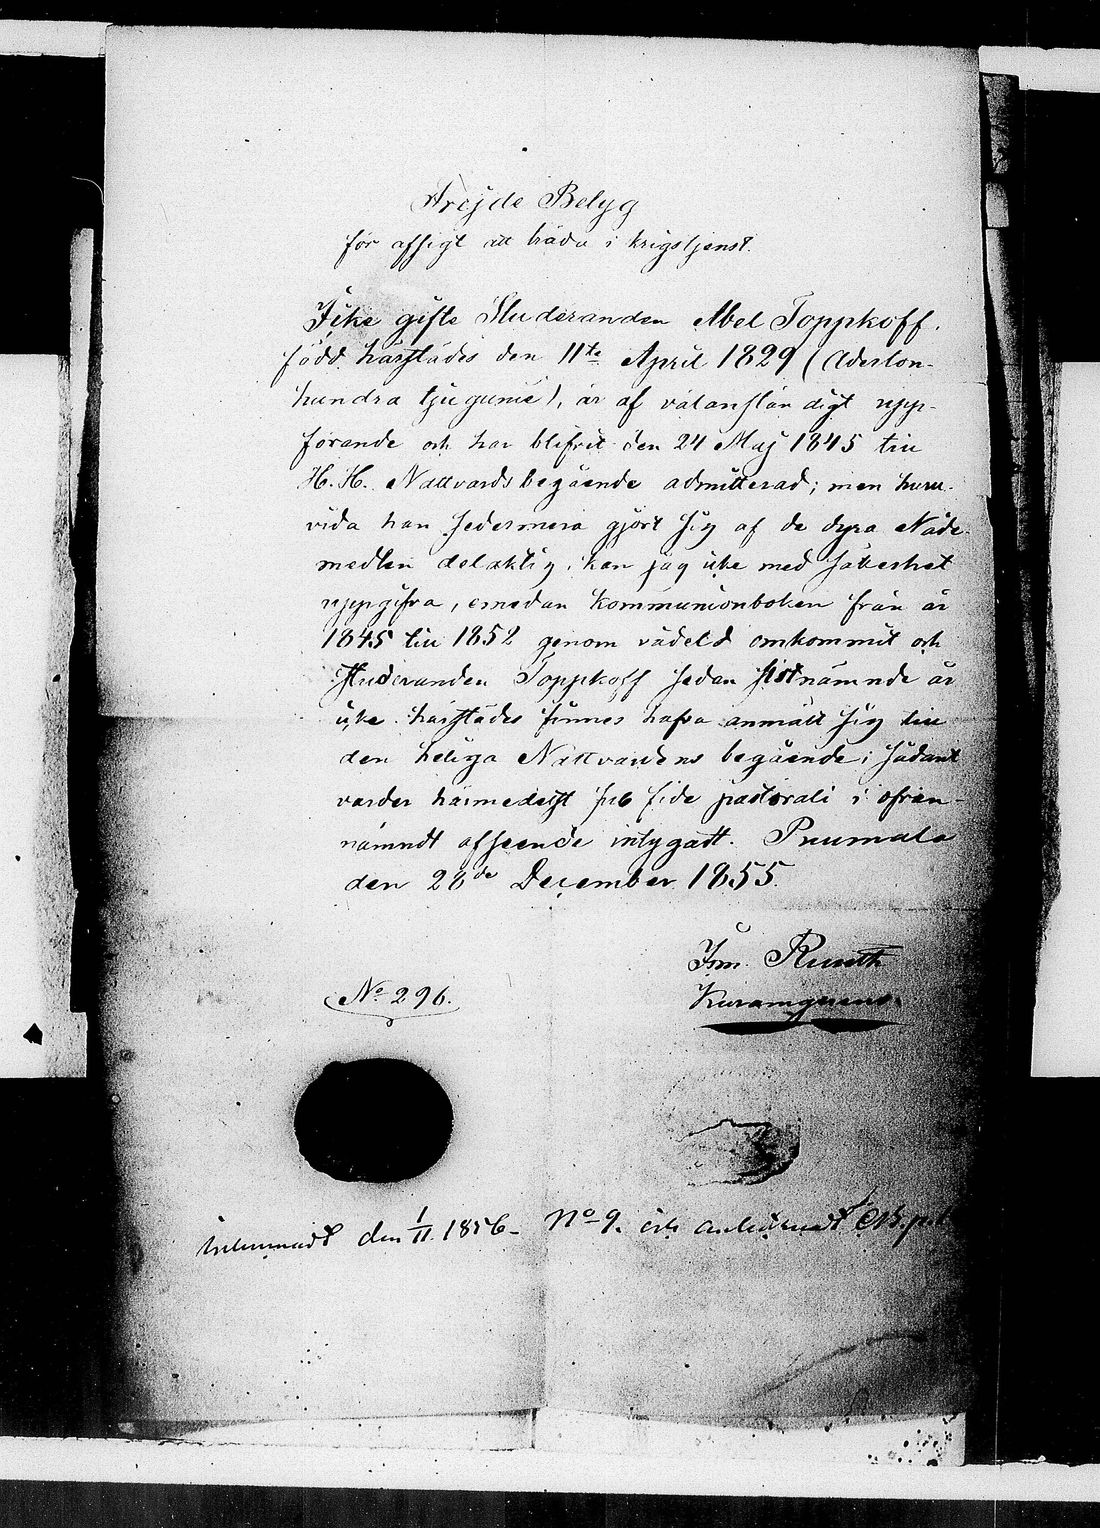 Frejde Betyg
för afsigt att träda i krigstjenst.
Icke gifte Studeranden Abel Toppkoff,
född härstädes den 11te April 1829 (Aderton-
hundra tjugunie), är af välanständigt upp-
förande och har blifvit den 24 Maj 1845 till
H. H. Nattvards begående admitterad; men huru-
vida han sedermera gjort sig af de dyra Nåde-
medlen delaktig, kan jag icke med säkerhet
uppgifva, emedan kommunionboken från år
1845 till 1852 genom vådeld omkommit och
Studeranden Toppkoff sedan sistnämnde år
icke härstädes finnes hafva anmält sig till
den heliga Nattvardens begående; sådant
varder härmedelst sub fide pastorali i ofvan-
nämndt afseende intygatt. Puumala
den 28de December 1855.
Joh. Ruuth
No 296.
den 1/11 1856 - No 9. och